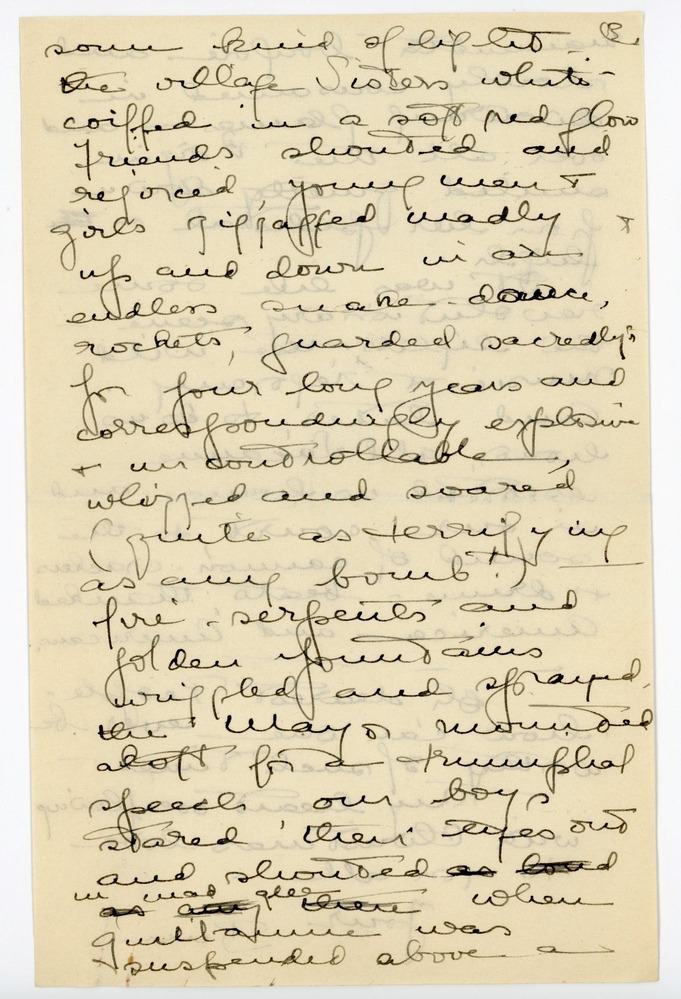 13.
some kind of light -
the village Sisters white-
coiffed in a soft red glow
Friends shouted and
rejoiced, young men +
girls zigzagged madly
up and down in an
endless snake-dance,
rockets, guarded sacredly
for four long years and
correspondingly explosive
+ uncontrollable,
whizzed and soared
(quite as terrifying
as any bomb!)
fire-serpents and
golden fountains
wriggled and sprayed,
the Mayor mounted
aloft for a triumphal
speech our boys
stared their eyes out
and shouted as loud
in mad glee
as any there when
Guillaume was
suspended above a